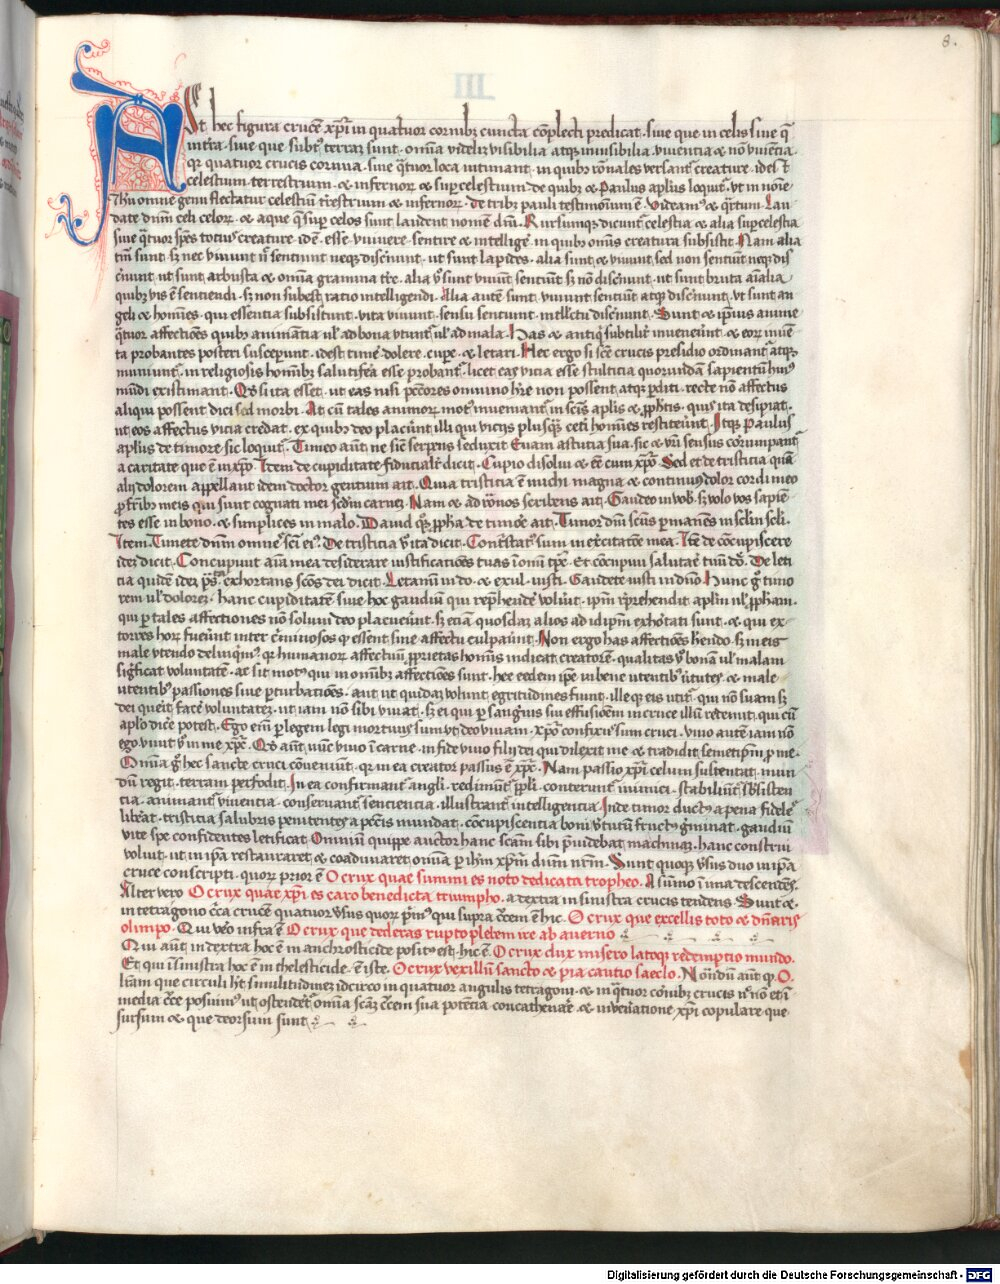 8.
III
ASt hec figura crucē xp̄i in quatuor cornibꝫ cuncta cōplecti predicat · siue que in celis siue q̄
infra · siue que subtꝰ terraꝫ sunt · omīa videliꝫ visibilia atqꝫ inuisibilia viuentia ⁊ nō viuētia
qꝛ quatuor crucis cornua · siue q̄tuor loca intimant · in quibꝫ rōnales versantꝛ creature · idest
celestium terrestrium · ⁊ infernoꝝ ⁊ suꝑcelestium de quibꝫ ⁊ Paulus apl̄us loquitꝛ · vt in noīe
Jhū omne genu flectatur celestiū t̄restrium ⁊ infernoꝝ · de tribꝫ pauli testimonium ē · Videamꝰ ⁊ q̄rtum · Lau
date dn̄m celi celoꝝ · ⁊ aque q̄ suꝑ celos sunt laudent nomē dn̄i · Rursumqꝫ dicunt̄ celestia ⁊ alia suꝑcelestia
siue q̄tuor sp̄es totiꝰ creature · idē · esse viuere · sentire ⁊ intelliger̄ · in quibꝫ om̄is creatura subsistit · Nam alia
tm̄ sunt · sꝫ nec viuunt n̄ sentiunt neqꝫ disc̄niunt · ut sunt lapides · alia sunt ⁊ viuunt · sed non sentiunt neqꝫ dis
c̄niunt · ut sunt arbusta ⁊ omīa gramina t̄re · alia v̄o sunt viuūt sentiunt sꝫ nō disc̄niūt · ut sunt bruta aīalia
quibꝫ vis ē sentiendi · sꝫ non subest ratio intelligendi · Alia autē sunt viuunt sentiūt atqꝫ disc̄niunt · vt sunt an
geli ⁊ homīes · qui essentia subsistunt · vita viuunt · sensu sentiunt · intellectu disc̄niunt · Sunt ⁊ ipsius anime
q̄tuor affectiões quibꝫ animātia ul̄ ad bona vtuntꝛ ul̄ ad mala · Has ⁊ antiq̄ subtilit̄ inuenerūt ⁊ eoꝝ inuē
ta probantes posteri susceperunt · idest timēr dolere · cupe · ⁊ letari · Hec ergo si sc̄e crucis presidio ordinantꝛ atqꝫ
muniuntꝛ · in religiosis homībꝫ salutifera esse probantꝛ · licet eas vicia esse stulticia quorundā sapientū huiꝰ
mūdi existimant · Qđ si ita esset · ut eas nisi pctōres omnino hr̄e non possent atqꝫ ꝑditi · recte nō affectus
aliqui possent dici sed morbi · At cū tales animoꝝ motꝰ inueniantꝛ in scīs aplīs ⁊ ꝓphetis · quis ita desipiat
ut eos affectus vicia credat · ex quibꝫ deo placūnt illi qui viciis plusqꝫ ceti homīes restiterūnt · Itqꝫ Paulus
apl̄us de timore sic loquitꝛ · Timeo autē ne sic̄ serpens seduxit Euam astutia sua · sic ⁊ vr̄i sensus corrumpantꝛ
a caritate que ē in xp̄o · Item de cupiditate fiducialit̄ dicit · Cupio disolui ⁊ eē cum xp̄o · Sed et de tristicia quā
alij dolorem appellant idem doctor gentium ait · Quia tristicia ē michi magna ⁊ continuus dolor cordi meo
ꝓ fr̄ibꝫ meis qui sunt cognati mei scdm̄ carnē · Nam ⁊ ad rōnos scribens ait · Gaudeo in vob̄ · sꝫ volo vos sapiē
tes esse in bono · ⁊ simplices in malo · Dauid qꝫ ꝓpħa de timore ait · Timor dn̄i scūs permanēs in sc̄lm sc̄li ·
Item · Timete dn̄m omnes sc̄i eiꝰ · De tristicia v̄o ita dicit · Contristatꝰ sum in exercitatiōe mea · Itē de concupiscere
ideꝫ dicit · Concupiuit aīa mea desiderare iustificatiōes tuas ī omī tpr̄e · Et cōcupiui salutar̄ tuū dn̄e · De leti
cia quidē ideꝫ ps̄ta exhortans scōs dei dicit · Letamī in dn̄o ⁊ exul · iusti · Gaudete iusti in dn̄o · Hunc g̊ timo
rem ul̄ doloreꝫ · hanc cupiditatē siue hoc gaudiū qui repͤhende volūit · ipm̄ rͤprehendit aplm̄ ul̄ ꝓpham ·
qui ꝑ tales affectiones nō solum deo placuerūt · sꝫ eciam quosdaꝫ alios ad idipm̄ exhōtati sunt · ⁊ qui ex
torres hoꝝ fuerūt inter c̄minosos ꝙ essent sine affectu culpārūt · Non ergo has affectiões hn̄do · sꝫ in eis
male vtendo delinq̄mꝰ · qꝛ humanoꝝ affectuū ꝓprietas homīs indicat creatorē · qualitas v̄o bonā ul̄ malam
significat voluntatē · ac sit motꝰ qui in omībꝫ affectiōes sunt · hee eedem ip̄e vi bene utentibꝰ v̄tutes · ⁊ male
utentibꝰ passiones siue ꝑturbatiōes · aut ut quidaꝫ volunt egritudines fiunt · ille qꝫ eis utitꝛ qui nō suam sꝫ
dei querit facer̄ voluntateꝫ · ut iam nō sibi viuat · sꝫ ei qui ꝑ sanguīs sui effusiōem in cruce illū redemit · qui cū
aplō dicer̄ potest · Ego em̄ ꝑ legem legi mortuus sum · vt deo viuam · xp̄o confixus sum cruci · viuo autē iam nō
ego · viuit v̄o in me xp̄c · Qđ aūt nūc viuo ī carne · in fide viuo filij dei qui dilexit me ⁊ tradidit semetip̄m ꝓ me ·
Omīa g̊ hec sancte cruci cōueniūt · qꝛ in ea creator passus ē xp̄c · Nam passio xp̄i celum sustentat · mun
dū regit · terram perfodit · In ea confirmantꝛ angli · redimuntꝛ ppli · conteruntꝛ inimici · stabiliuntꝛ sb̄listen
cia · animantꝛ viuentia · conseruantꝛ sentiencia · illustrantꝛ intelligencia · Inde timor ductꝰ a pena fideleꝫ
liberat · tristicia salubris penitentes a pctīs mundat · cōcupiscentia boni v̄turū fructꝰ g̊minat · gaudiū
vite spe confidentes letificat · Omniū quippe auctor hanc scām sibi ꝓuidebat machinaꝫ · hanc construi
voluit · ut in ip̄a restauraret ⁊ coadunaret omīa ꝑ ihm̄ xpm̄ dm̄ nr̄m · Sunt quoqꝫ v̄sus duo in ip̄a
cruce conscripti · quoꝝ prior ē O crux quae summi es noto dedicata tropheo · A sūmo ī ima descendēs ·
Alter vero O crux quae xp̄i es caro benedicta triumpho · a dextra in sinistra crucis tendens · Sunt ⁊
in tetragono c̄ca crucē quatuor v̄sus quoꝝ p̄mꝰ qui supra c̄cem ē hic · O crux que excellis toto ⁊ dn̄aris
olimpo · Qui vero infra ē O crux que dederas rupto plebem ire ab auerno
Qui aūt in dextra hoc ē in anchrosticide positꝰ est · hic ē · O crux dux misero latoqꝫ redemptio mundo ·
Et qui ī sinistra hoc ē in thelesticide · ē iste · O crux vexillū sancto ⁊ pia cautio saeclo · Nōndū aūt ꝙ · O
līam que circuli hꝫ similitudineꝫ idcirco in quatuor angulis tetragoni ⁊ in q̄tuor cornibꝫ crucis n̄ nō et ī
media c̄ce posuimꝰ ut ostenderet omīa scāꝫ c̄cem sua potētia concathenar̄ ⁊ in veneratione xp̄i copulare que
sursum ⁊ que deorsum sunt
Digitalisierung gefördert durch die Deutsche Forschungsgemeinschaft - DFG